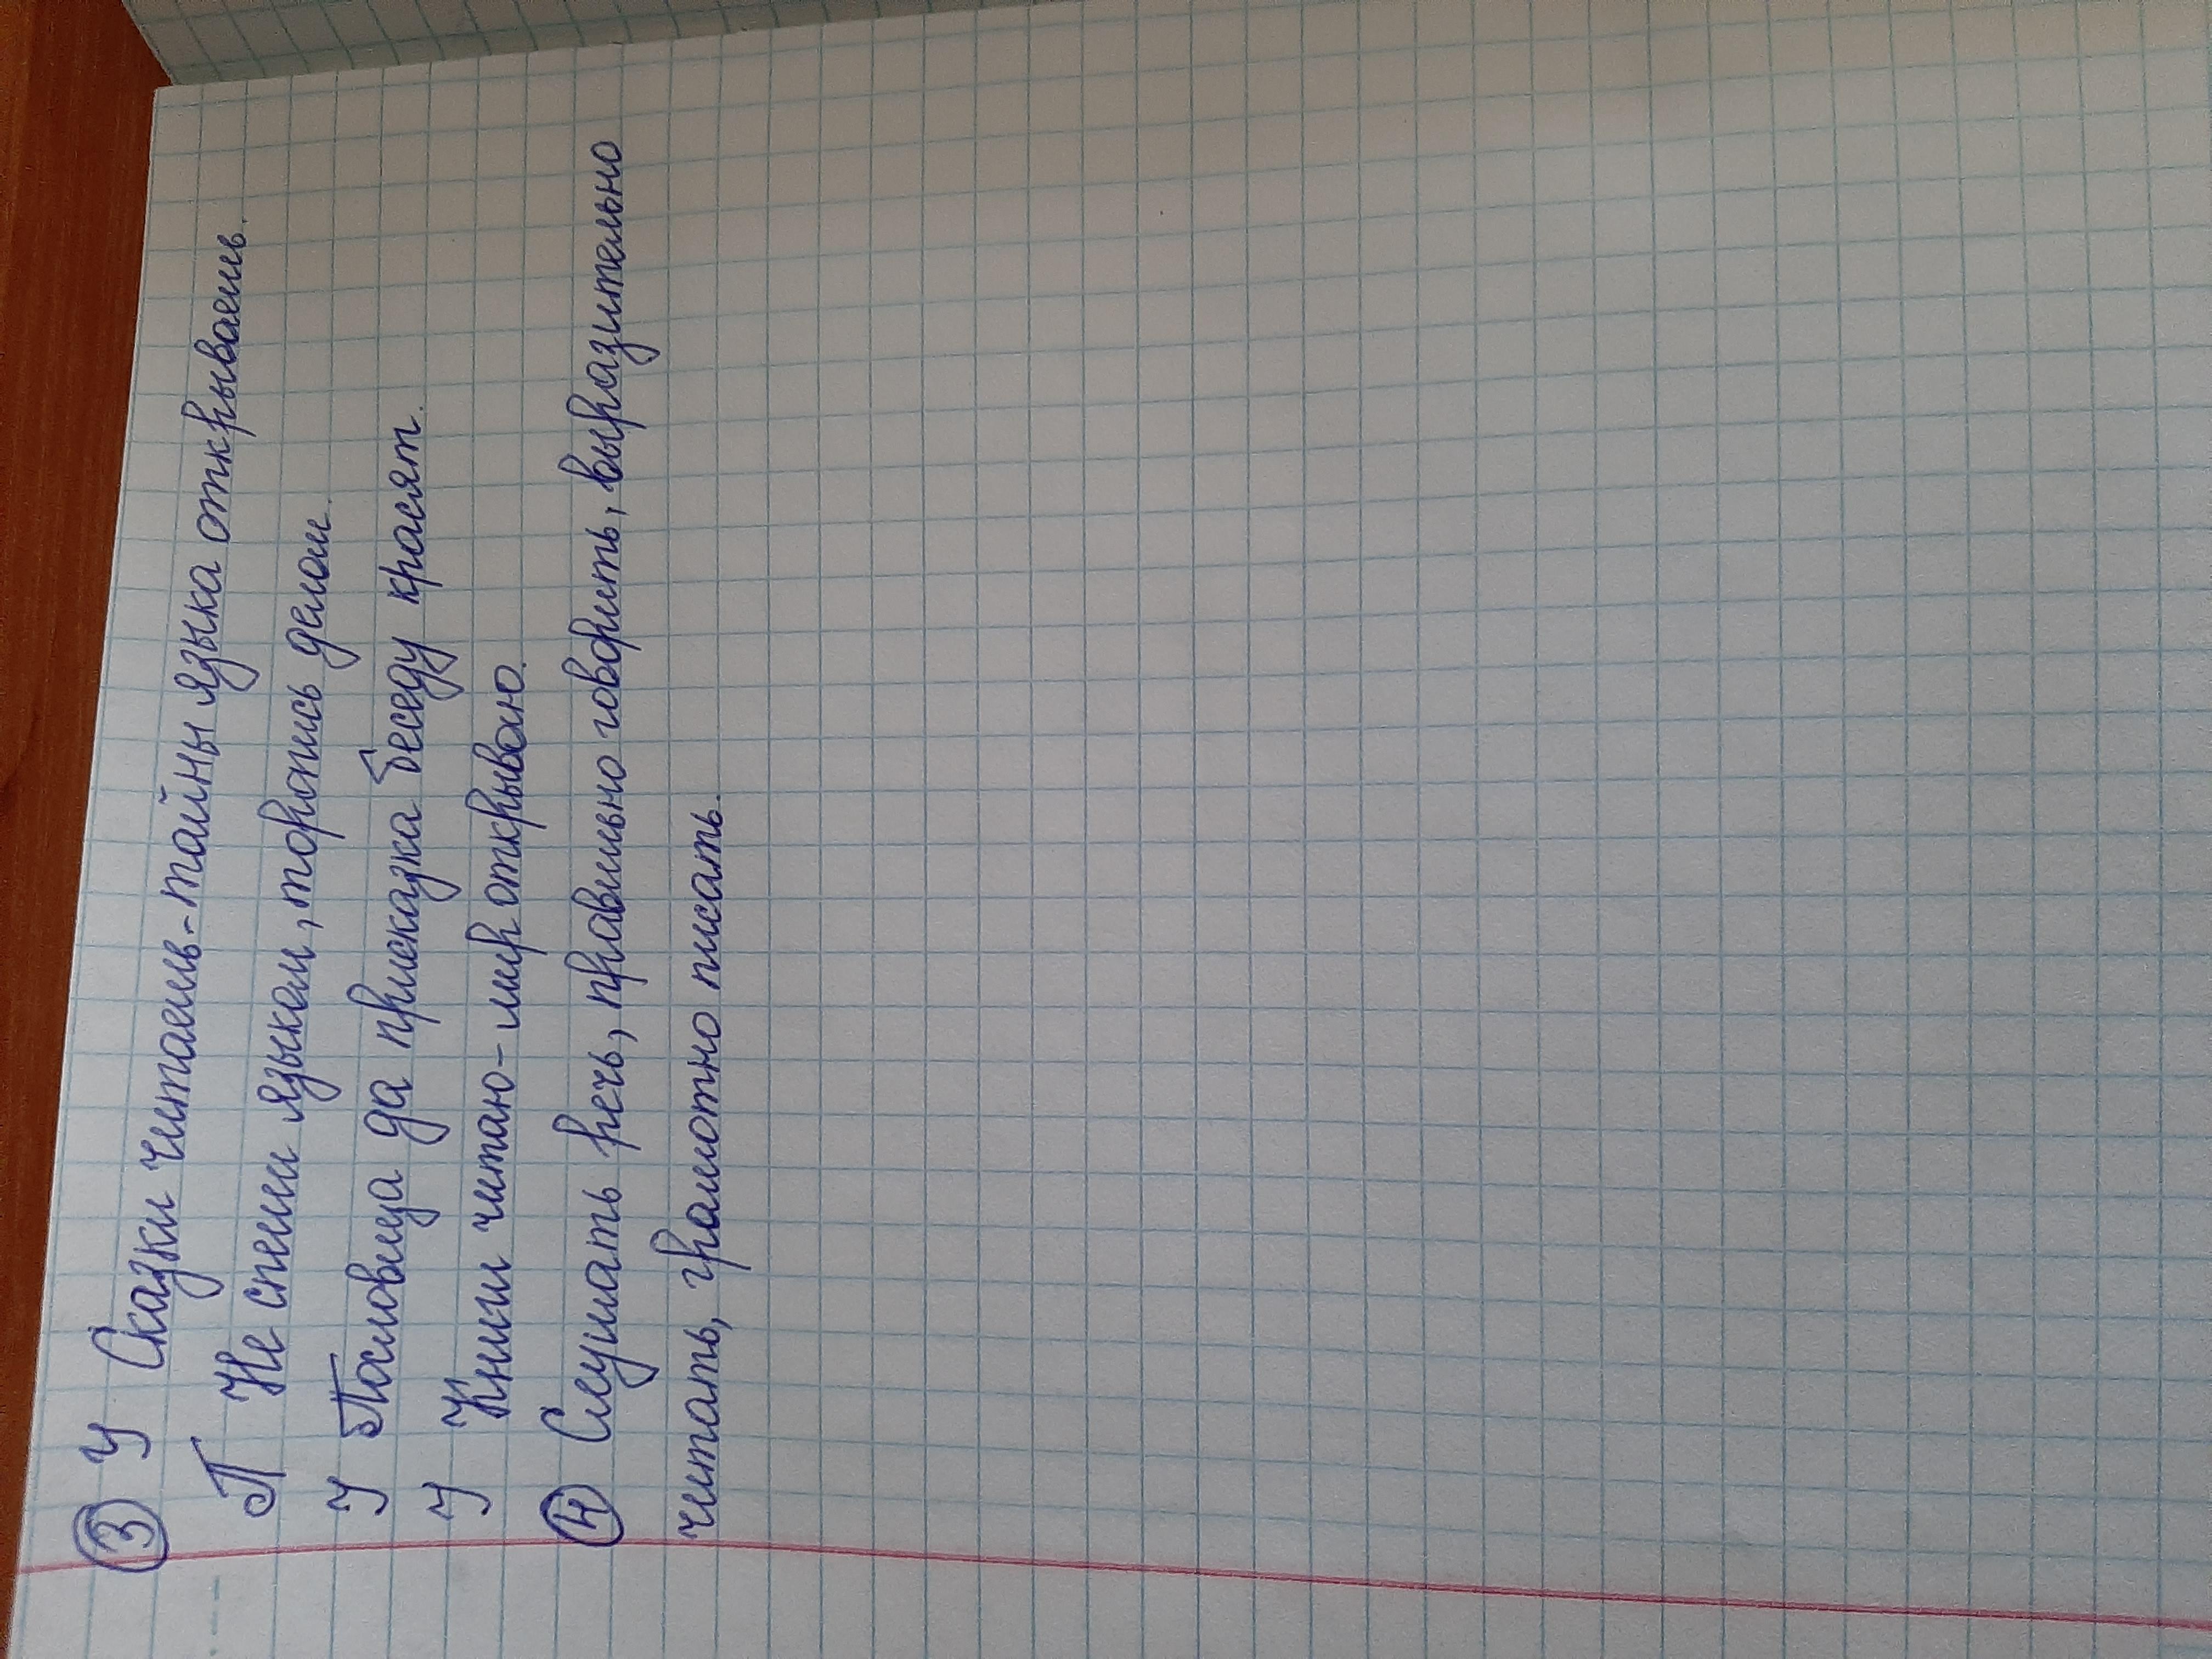 ③ У Сказки читаешь-тайны языка открываешь.
П Не спеши языком, торопись делом.
У Пословица да присказка беседу красят.
У Книги читаю-мир открываю.
④ Слушать речь, правильно говорить, выразительно
читать, грамотно писать.